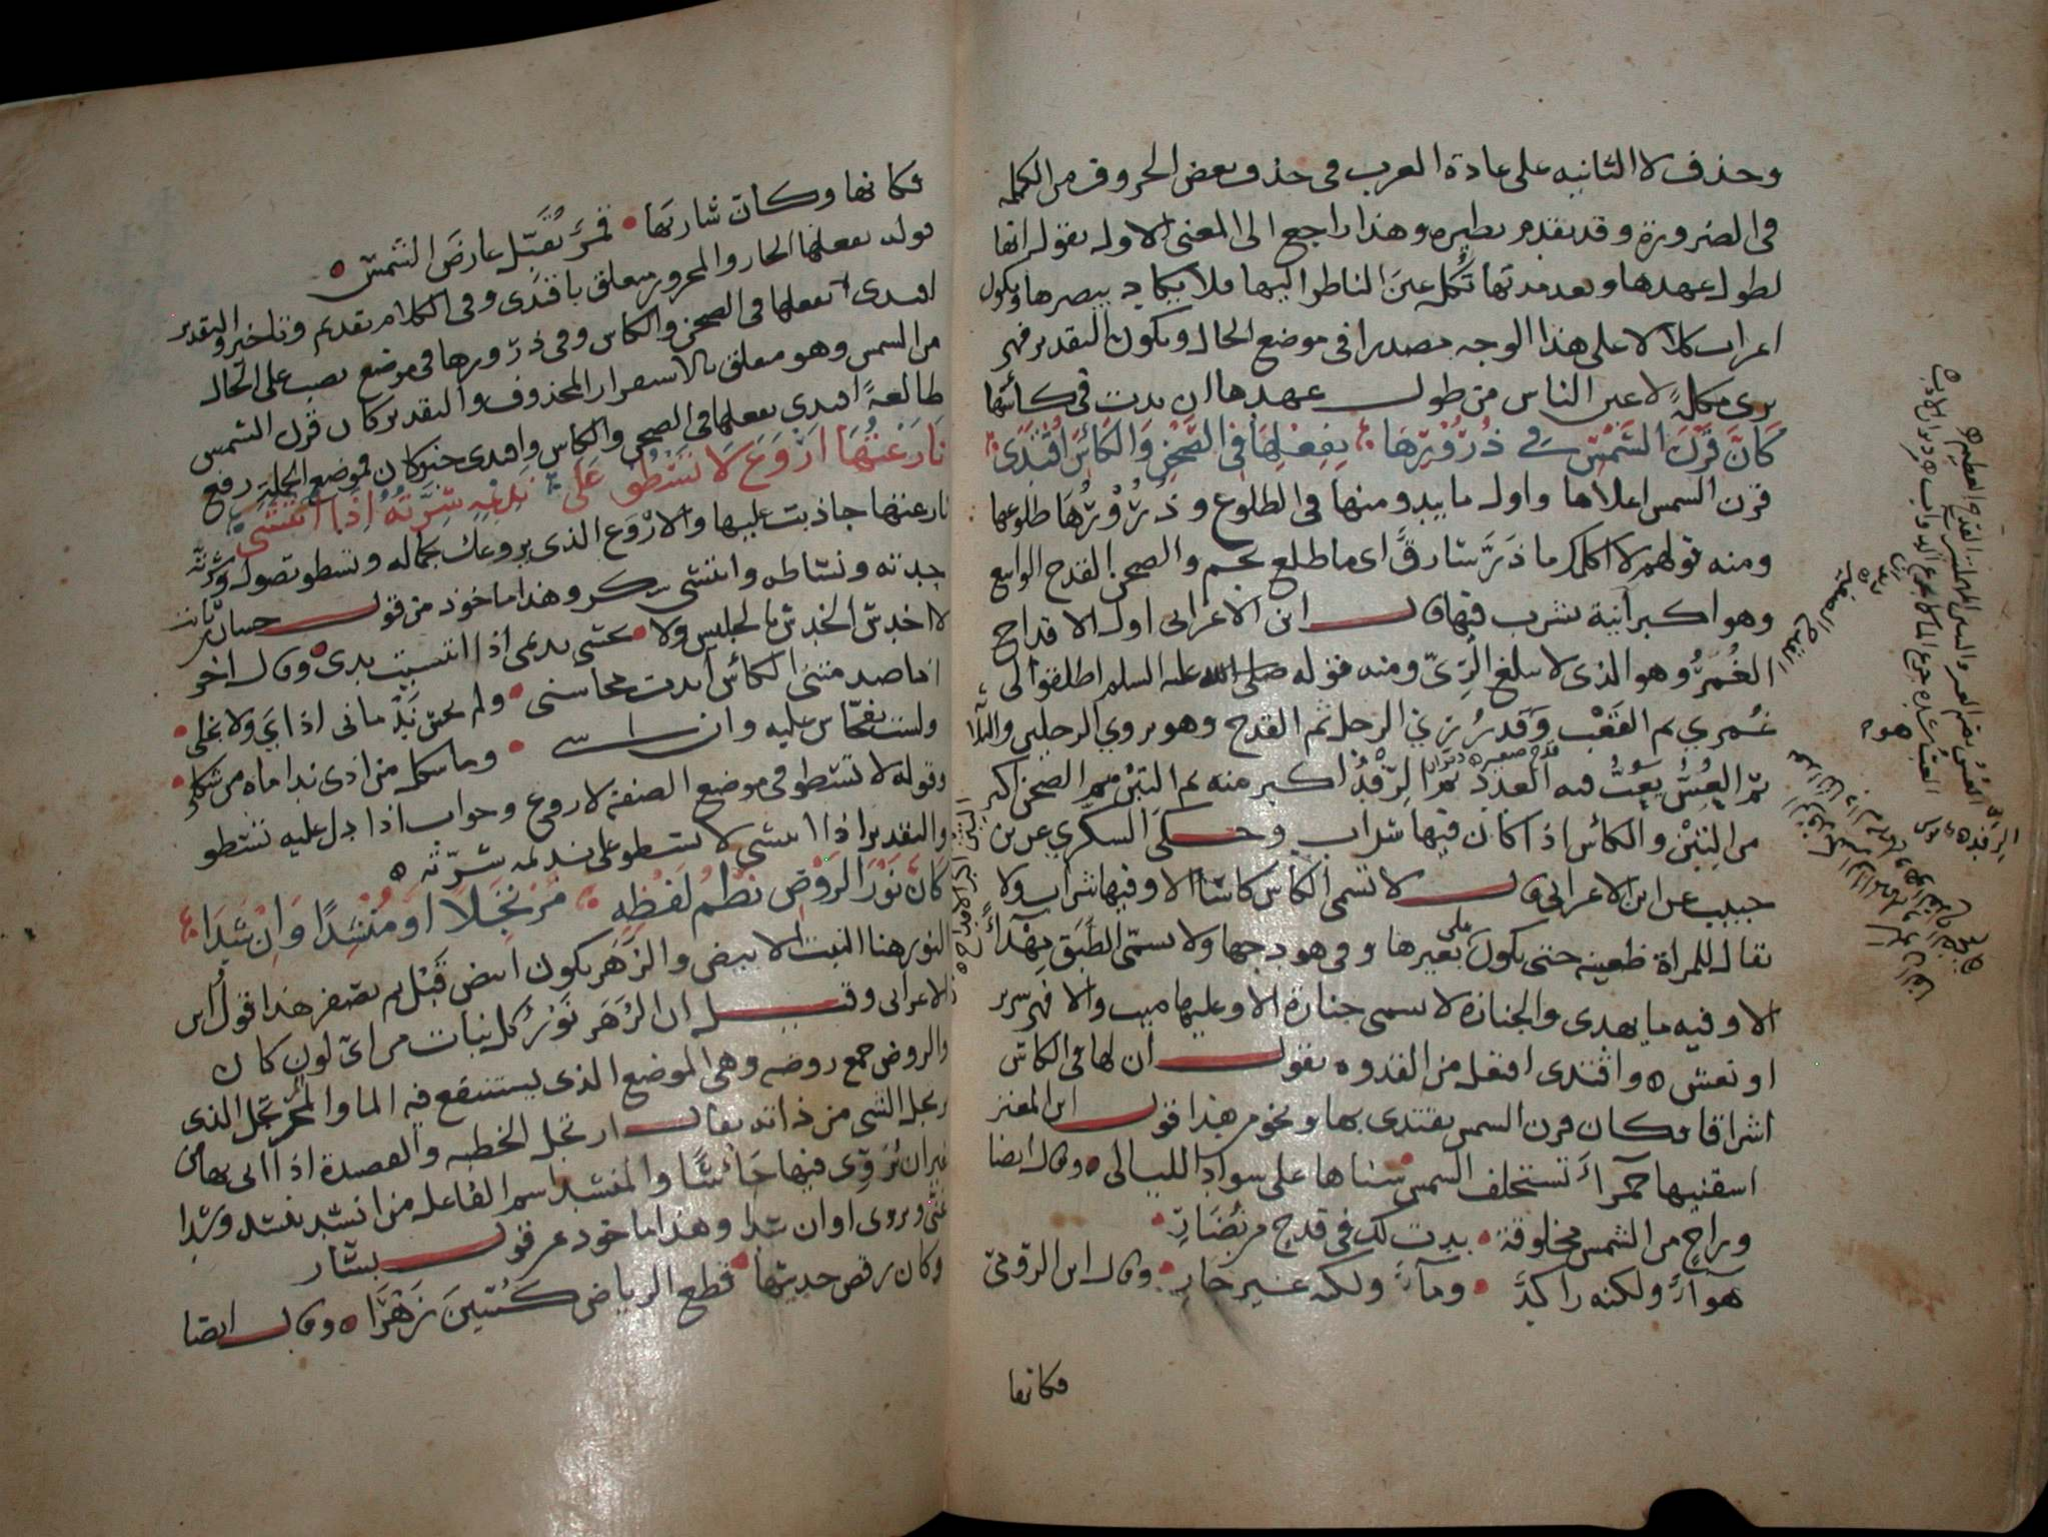 وحذف لا الثانيه على عادة العرب فى حذف بعض الحروف من الكلمه
فى الضرورة وقد تقدم نظيره وهذا راجع الى المعنى الاول يقول انها
لطول عهدها وبعد مدتها تُكل عين الناظر اليها فلا يكاد يبصرها ويكون
اعراب كلالا على هذا الوجه مصدرا فى موضع الحال ويكون التقدير فهى
ترى مكلةً لاعين الناس من طول عهدها ان بدت فى كأسها
كَانَّ قَرْنَ الشَّمْسِ فى ذُرُوْرِهَا بِفِعْلِهَا فى الصَّحْنِ وَالكَاْسِ اقْتَدَى
قرن الشمس اعلاها واول ما يبدو منها فى الطلوع وذُرُوْرُهَا طلوعها
ومنه قولهم لا اكلمك ما ذَرَّ شارقٌ اى ما طلع نجم والصحن القدح الواسع
وهو اكبر آنية يشرب فيها قال ابن الاعرابى اول الاقداح
الغُمَرُ وهو الذى لا يبلغ الرِىّ ومنه قوله صلى الله عليه السلم اطلقوا لى
غُمَرِي ثم القَعْب وَقَدرُ رِيّ الرجل ثم القدح وهو يروي الرجلين والثلاثة
ثم العُسُّ يَعُبُّ فيه العدد ثم الرِّفْدُ اكبر منه ثم التِبْن ثم الصحن اكبر
قدح صغير
من التِبْنِ والكأس اذا كان فيها شراب وحكى السكري عن بن
حبيب عن ابن الاعرابى قال لا تسمى الكأس كاسًا الا وفيها شراب ولا
يقال للمراة ظعينه حتى يكون على بعيرها وفى هودجها ولا يسمّى الطَّبَق مِهْدًا
الا وفيه ما يهدى والجنازة لا تسمى جنازة الا وعليها ميت والا فهى سرير
او نعش واقتدى افتعل من القدوه يقول ان لها فى الكاس
اشراقا فكان قرن الشمس يقتدى بها ونحو من هذا قول ابن المعتز
اسقنيها حمراءَ تستخلف الشمس سناها على سواد الليالى وقال ايضا
وراحٍ من الشمس مخلوقة بدت لك فى قدح من نُضَارِ
هوآءٌ ولكنه راكدٌ ومآءٌ ولكنه غير جارِ وقال ابن الرومىّ
فكانها
فكانها وكان شاربَها قمرٌ يُقَبّل عارضَ الشمسِ
قوله بفعلها الجار والمجرور متعلق باقتدى وفى الكلام تقديم وتاخير والتقدير
اقتدى بفعلها فى الصحن والكاس وفى ذرورها فى موضع نصب على الحال
من الشمس وهو متعلق بالاستقرار المحذوف والتقدير كان قرن الشمس
طالعةً اقتدى بفعلها فى الصحن والكاس واقتدى خبر كان فموضع الجملة رفع
نَازَعْتُهَا اَرْوَعَ لَا تَسْطُو عَلَى نَدِيْمِهِ شِرَّتُهُ اِذَا انْتَشَى
نازعتها جاذبت عليها والاَرْوَع الذى يروعك بجماله وتسطو تصول وشِرَّتُه
حِدته ونشاطه وانتشى سكر وهذا ماخوذ من قول حسان بن ثابت
لا اخدش الخدش بالجليس ولا يخشى نديمى اذا انتشيت يدى وقال اخر
ولست بفحّاش عليه وان اسى وما شكل من اذى نداماه من شكلى
وقوله لا تسطو فى موضع الصفة لاروع وجواب اذا دل عليه تسطو
والتقدير اذا انتشى لا تسطو على نديمه شِرّته
كَانّ نَوْرَ الرَوْضِ نَظْمُ لَفْظِهِ مُرْتَجِلاً اوْ مُنْشِدًا وَاِنْ شَدَا
النور هنا النبت الابيض والزهَر يكون ابيض قَبْل ثم يصفر هذا قول ابن
الاعرابى وقيل ان الزَهَر نَوْرُ كل نبات من اىّ لون كان
والروض جمع روضه وهى الموضع الذى يستنقع فيه الما والمُرْتَجِل الذى
يرتجل الشى من ذاته يقال ارتجل الخطبه والقصيدة اذا اتى بها من
غير ان يُرَوّى فيها جَاشًا والمنشد اسم الفاعل من انشد ينشد وشدا
غنّى ويروى او ان شدا وهذا ماخوذ من قول بشار
وكان رقص حديثها قطع الرياض كُسْينَ زَهْرَا وقال ايضا